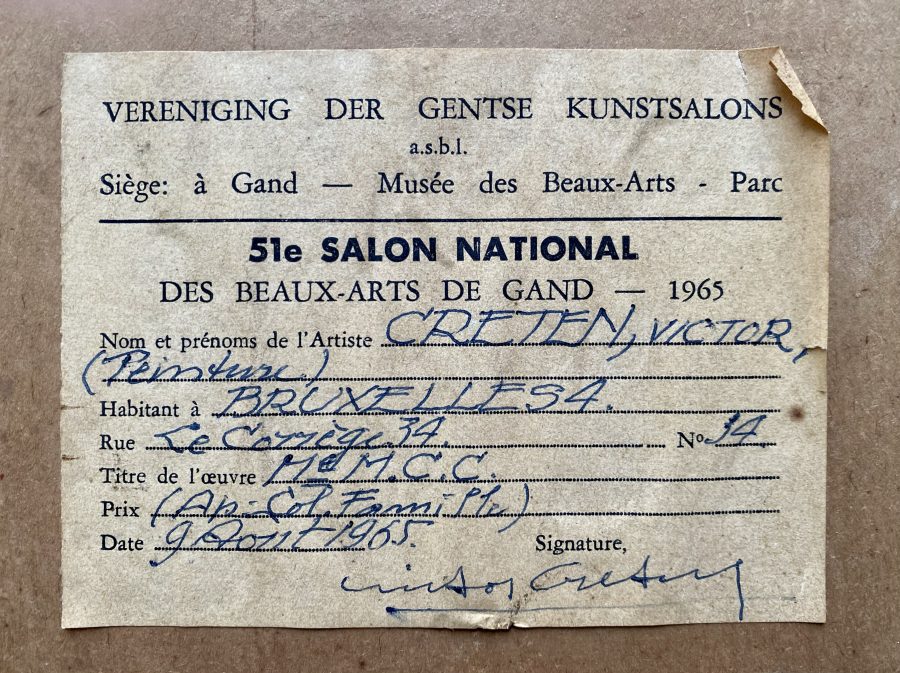 VERENIGING DER GENTSE KUNSTSALONS
a.s.b.l.
Siège: à Gand — Musée des Beaux-Arts - Parc
51e SALON NATIONAL
DES BEAUX-ARTS DE GAND — 1965
Nom et prénoms de l'Artiste CRETEN, VICTOR,
(Peinture)
Habitant à BRUXELLES 4.
Rue Le Corrège. 34. N° 34
Titre de l'œuvre Me M.C.C.
Prix (Ap-Col. Famille)
Date 9 Aout 1965.
Signature,
Victor Creten